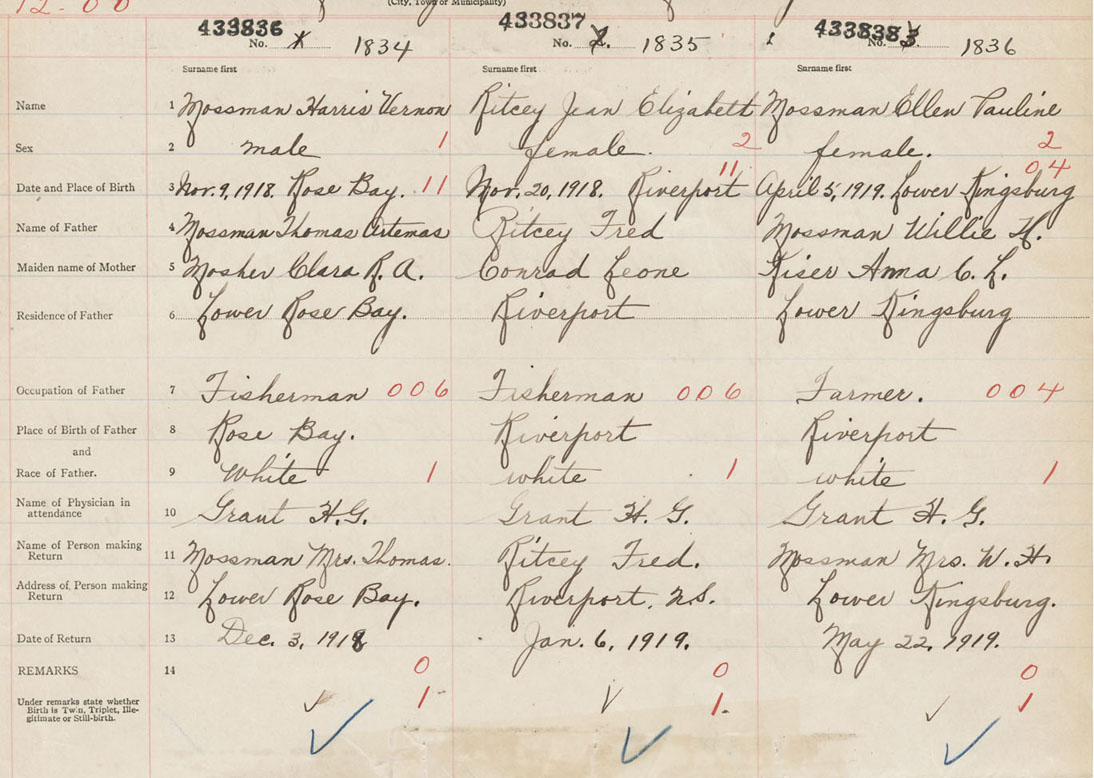 12-00
(City, Town or Municipality)
433836 433837 433838
No. 1834 No. 2. 1835 No. 3. 1836
Surname first Surname first Surname first
Name 1 Mossman Harris Vernon Ritcey Jean Elizabeth Mossman Ellen Pauline
Sex 2 male 1 female. 2 female. 2
Date and Place of Birth 3 Nov. 9, 1918. Rose Bay. 11 Nov. 20, 1918. Riverport 11 April 5, 1919. Lower Kingsburg 04
Name of Father 4 Mossman Thomas Artemas Ritcey Fred Mossman Willie H.
Maiden name of Mother 5 Mosher Clara R. A. Conrad Leone Kiser Anna C. L.
Residence of Father 6 Lower Rose Bay. Riverport Lower Kingsburg
Occupation of Father 7 Fisherman 006 Fisherman 006 Farmer. 004
Place of Birth of Father 8 Rose Bay. Riverport Riverport
and
Race of Father. 9 White 1 white 1 white 1
Name of Physician in
attendance 10 Grant H.G. Grant H. G. Grant H. G.
Name of Person making
Return 11 Mossman Mrs. Thomas. Ritcey Fred. Mossman Mrs. W. H.
Address of Person making
Return 12 Lower Rose Bay. Riverport, N.S. Lower Kingsburg.
Date of Return 13 Dec. 3, 1918 Jan. 6, 1919. May 22, 1919.
REMARKS 14 0 0 0
Under remarks state whether
Birth is Twin, Triplet, Ille-
gitimate or Still-birth. 1 1. 1